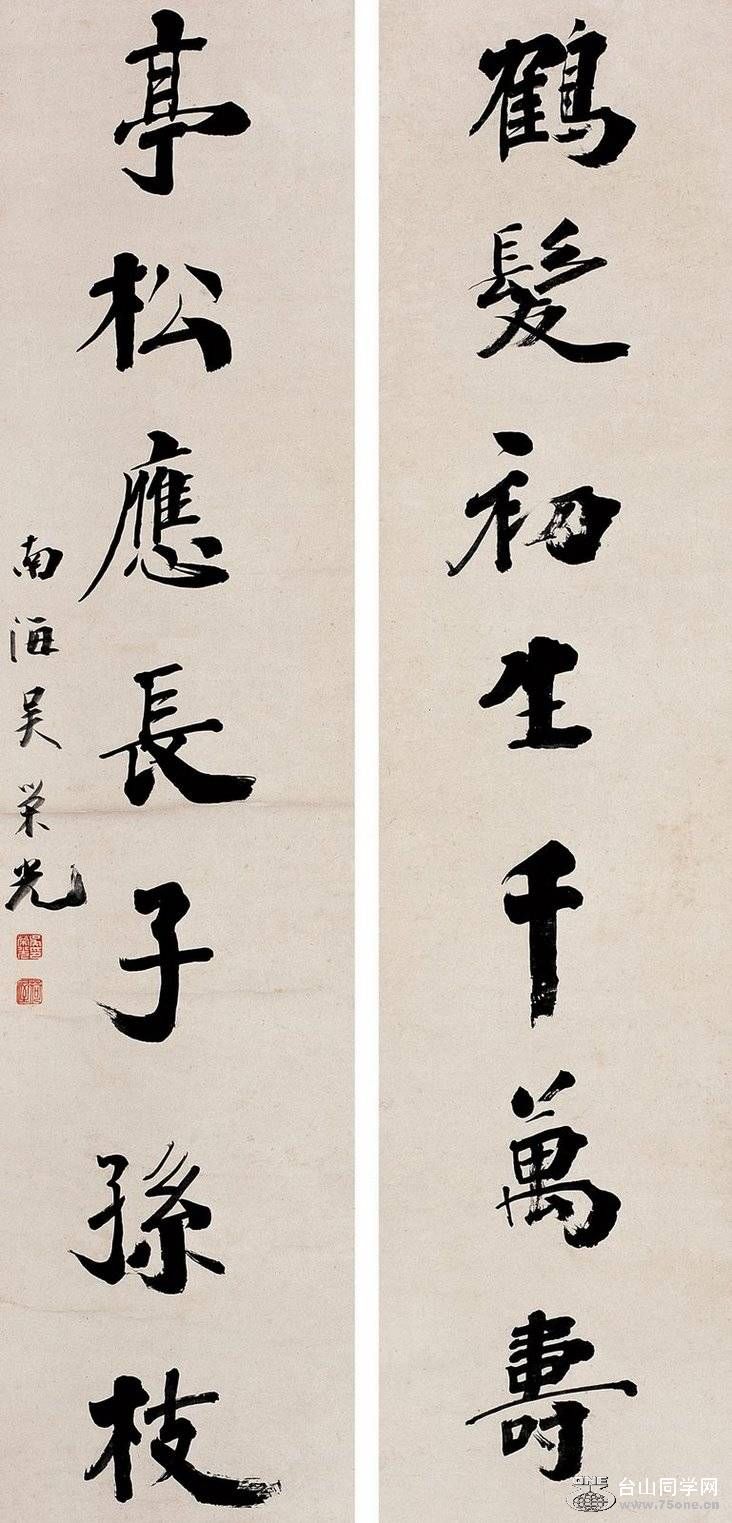 鶴髮初生千萬壽
亭松應長子孫枝
南海吳榮光
ONE
台山同学网
www.75one.cn